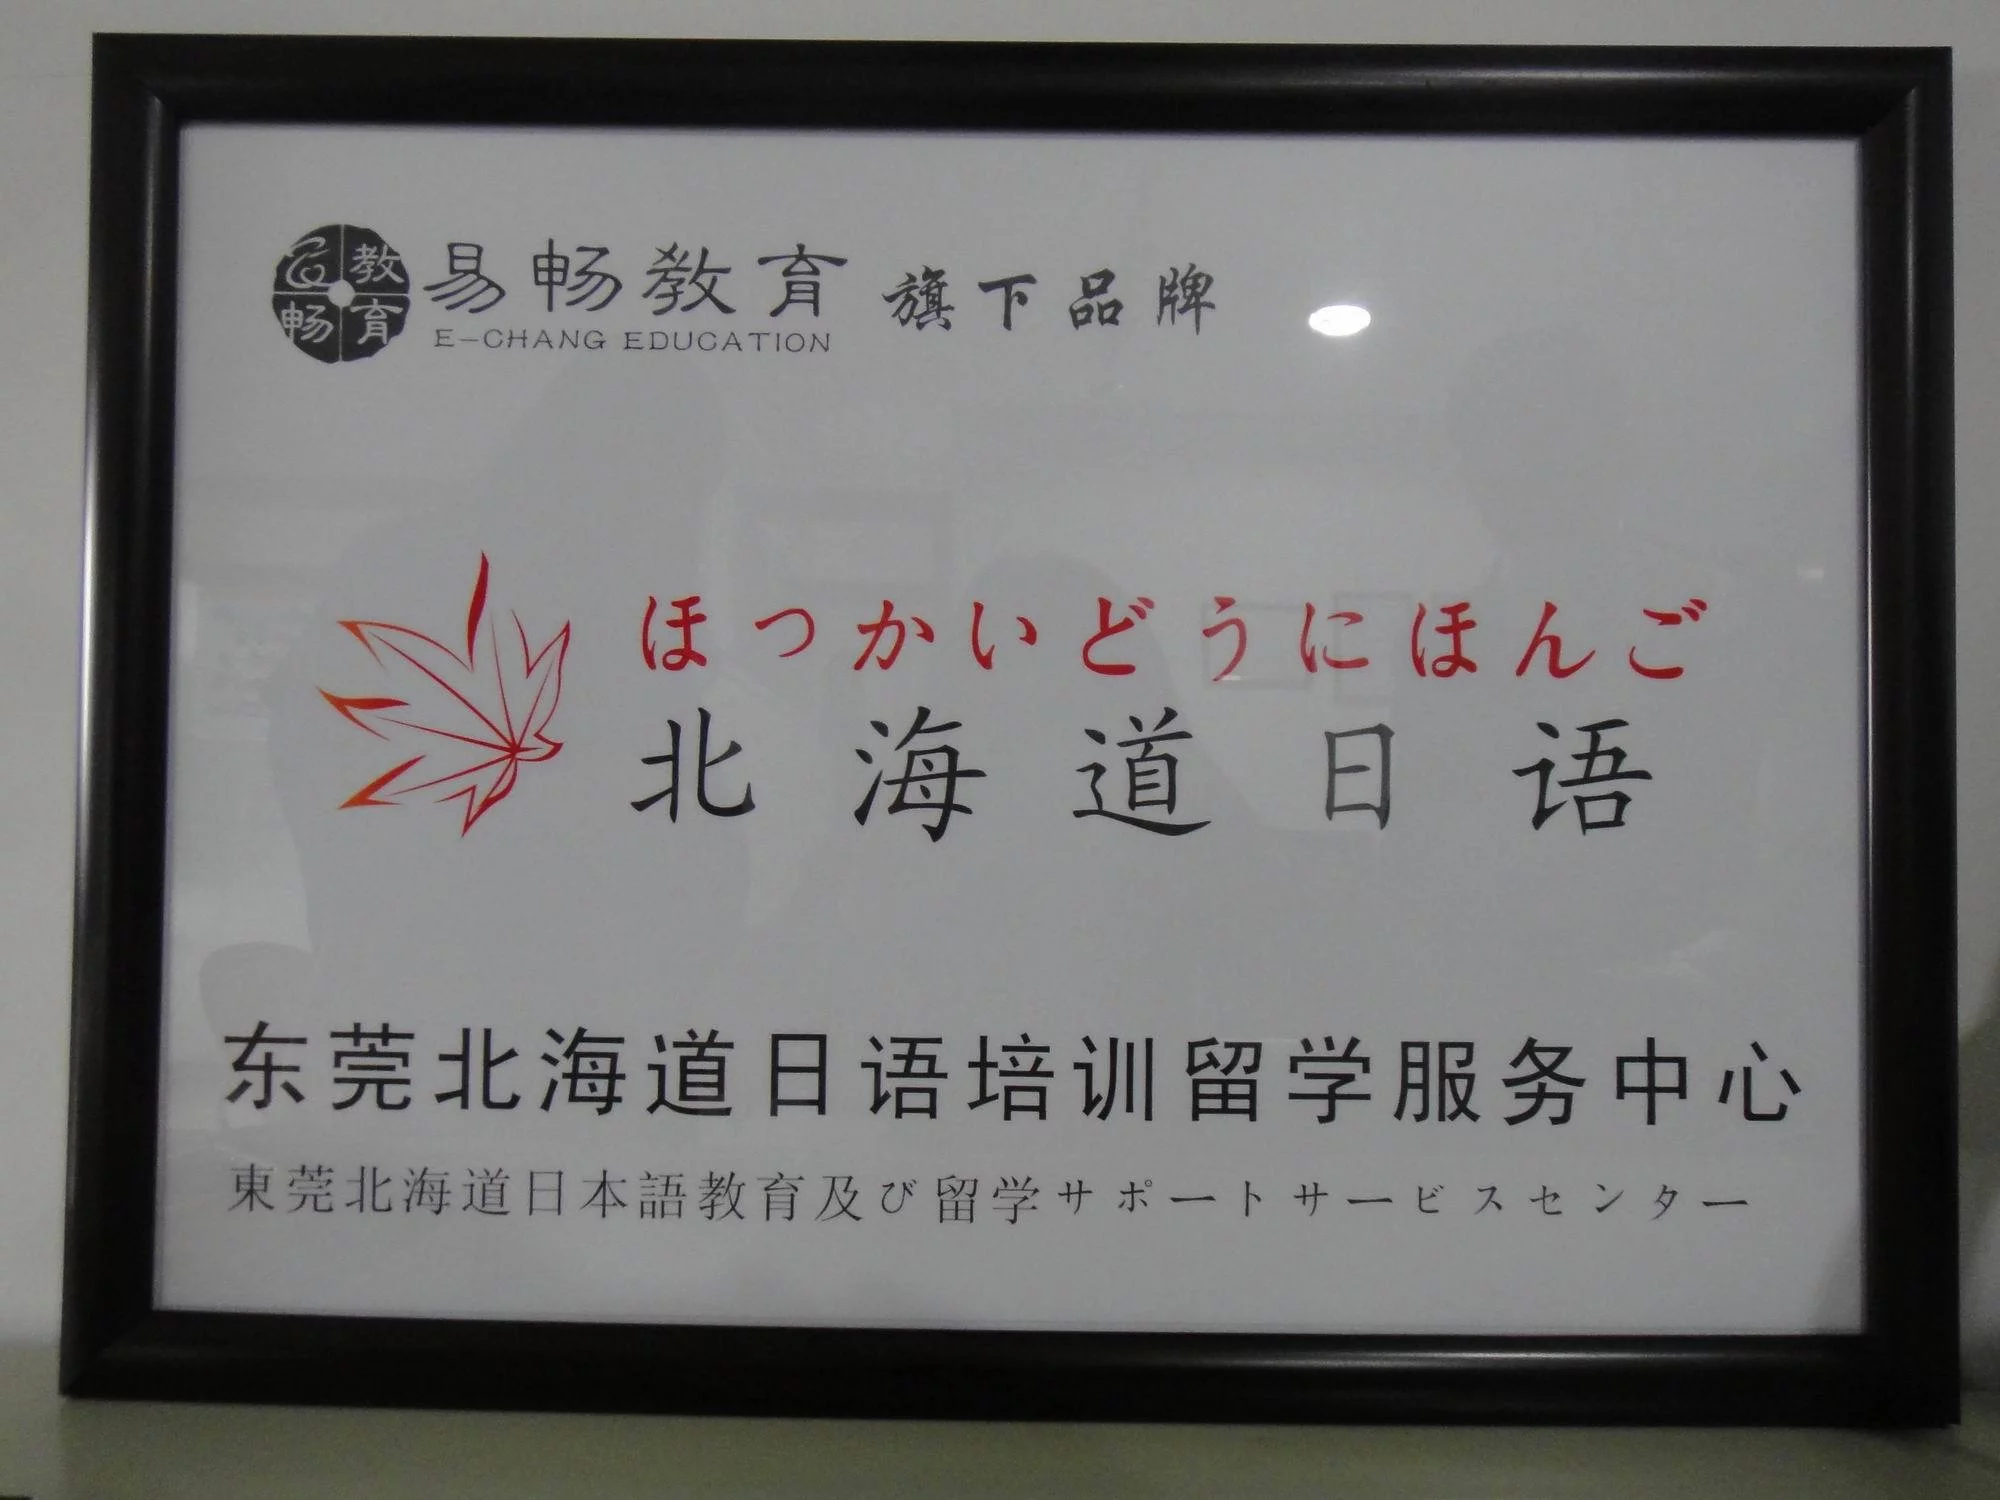 易畅教育 旗下品牌
E-CHANG EDUCATION
ほっかいどうにほんご
北海道日语
东莞北海道日语培训留学服务中心
東莞北海道日本語教育及び留学サポートサービスセンター